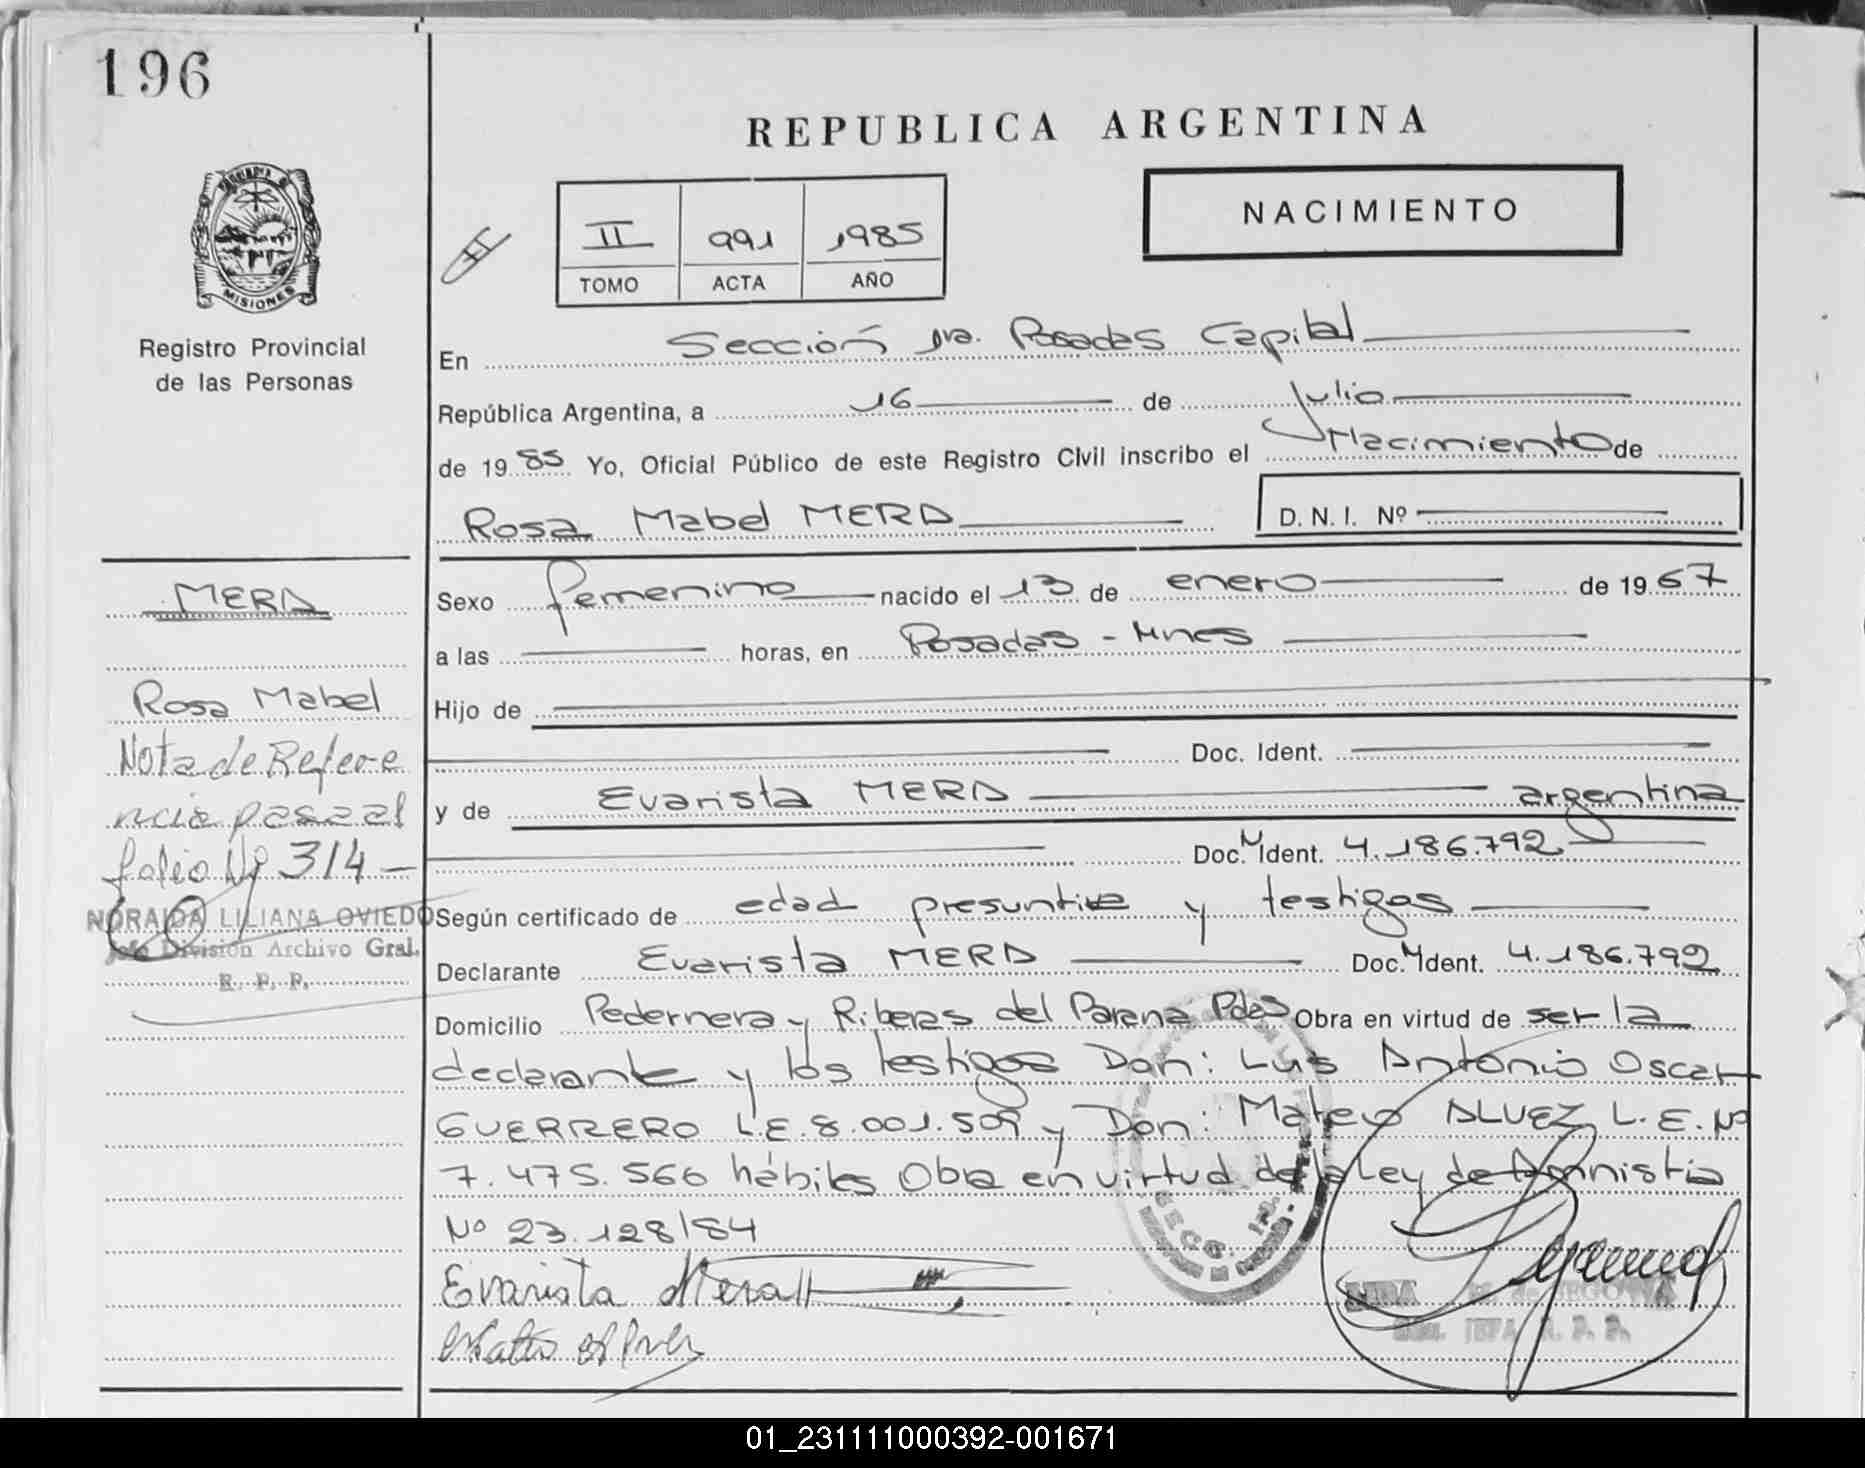 196
REPUBLICA ARGENTINA
NACIMIENTO
II 991 1985
TOMO ACTA AÑO
MISIONES
Registro Provincial
de las Personas
En Sección 1ra. Posadas Capital
República Argentina, a 16 de Julio
de 1985 Yo, Oficial Público de este Registro Civil inscribo el Nacimiento de
Rosa Mabel MERA D.N.I. Nº
MERA
Sexo femenino nacido el 13 de enero de 1967
a las horas, en Posadas - Mnes
Rosa Mabel
Hijo de
Nota de Refere
Doc. Ident.
ncia pasa al
y de Evarista MERA argentina
folio Nº 314 -
Doc. M Ident. 4.186.792
NORAIDA LILIANA OVIEDO
Jefe División Archivo Gral.
R. P. P.
Según certificado de edad presuntiva y testigos
Declarante Evarista MERA Doc. M Ident. 4.186.792
Domicilio Pedernera y Riberas del Parana Pdas Obra en virtud de ser la
declarante y los testigos Don: Luis Antonio Oscar
GUERRERO L.E. 8.001.509 y Don: Mateo ALUEZ L.E. Nº
7.475.566 hábiles Obra en virtud de la Ley de Amnistia
Nº 23.128/84
Evarista Mera
SECC. 1ra.
R. P. P.
01_231111000392-001671